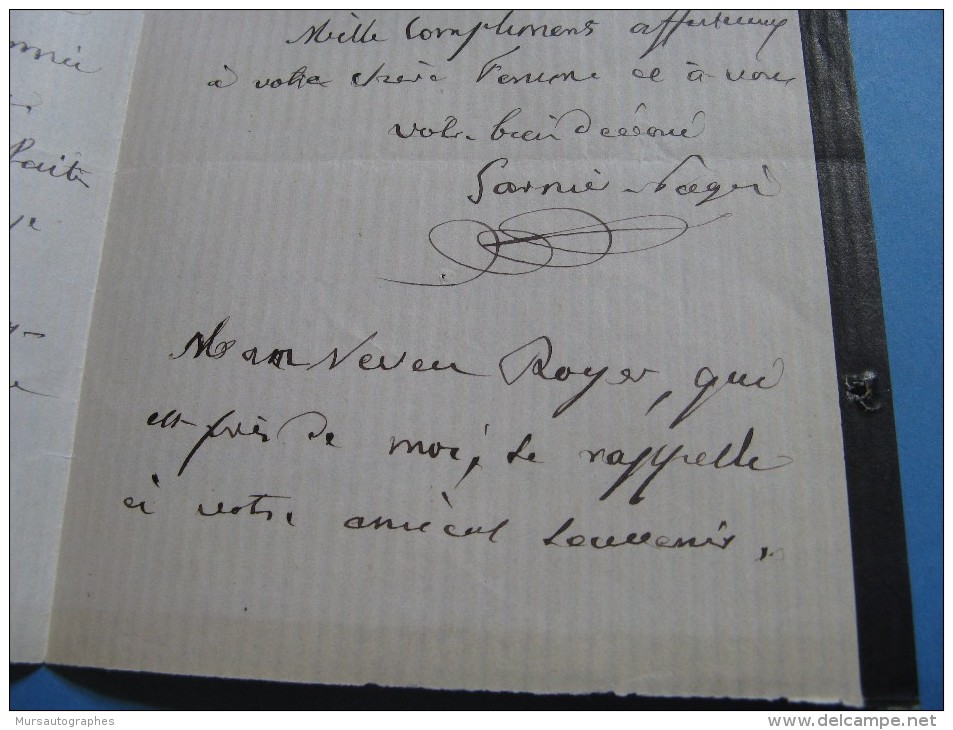 Mille Compliments affectueux
à votre chère Femme et à vous
votre bien dévoué
Garnier Pagès
Mon Neveu Royer, qui
est près de moi, se rappelle
à votre amical souvenir.
Mursautographes
www.delcampe.net